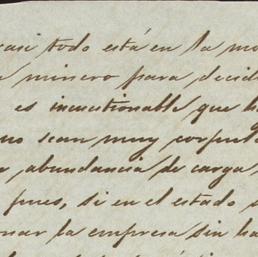 casi todo está en la ma
minero para decid
es incuestionable que ha
no sean muy corpule
abundancia de carga
pues, si en el estado
nar la empresa sin ha